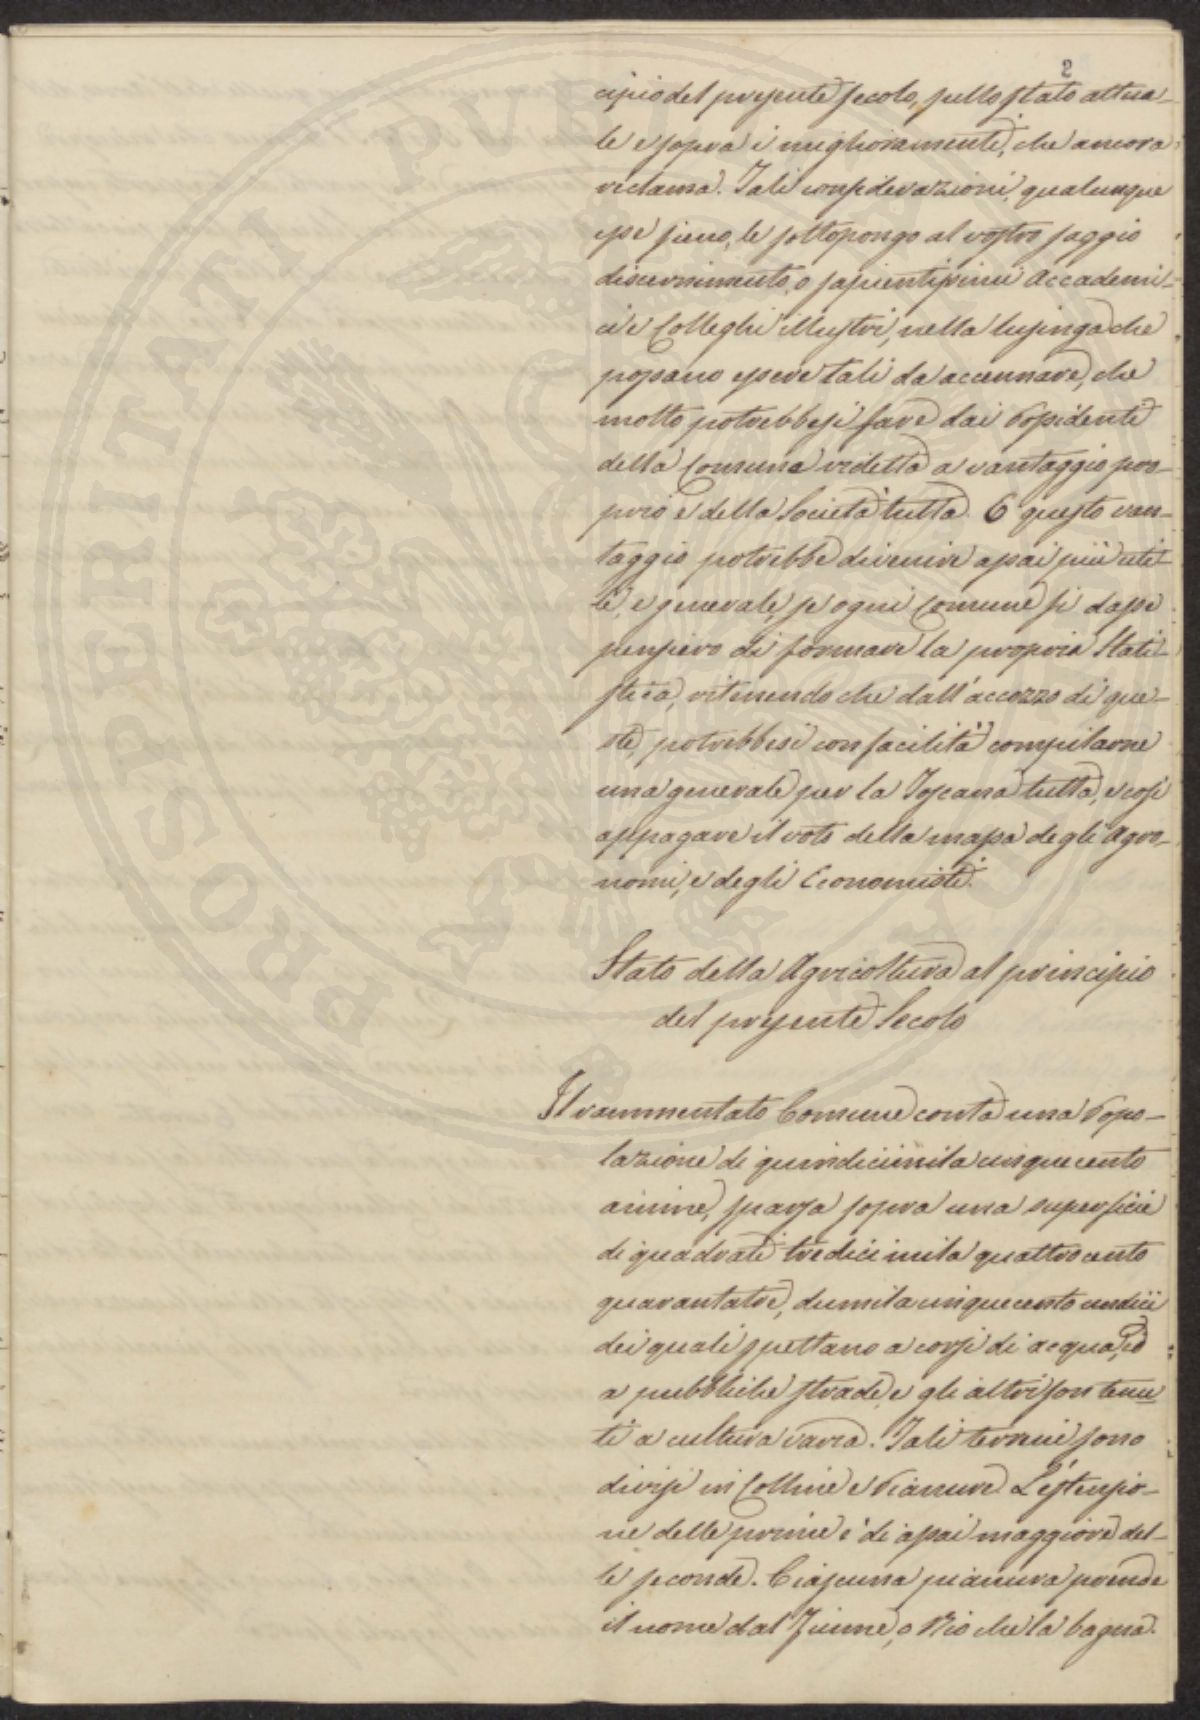 2
cipio del presente secolo, sullo stato attua-
le e sopra i miglioramenti, che ancora
reclama. Tali considerazioni, qualunque
esse sieno, le sottopongo al vostro saggio
discernimento, o sapientissimi Accademi-
ci e Colleghi Illustri, nella lusinga che
possano essere tali da accennare, che
molto potrebbesi fare dai Possidenti
della Comune ridetta a vantaggio pro-
prio e della Società tutta. E questo van-
taggio potrebbe divenire assai più uti-
le, e generale, se ogni Comune si dasse
pensiero di formare la propria Stati-
stica, ritenendo che dall'accozzo di que-
ste, potrebbesi con facilità compilarne
una generale per la Toscana tutta, e così
appagare il voto della massa degli Agro-
nomi, e degli Economisti.
Stato della Agricoltura al principio
del presente Secolo
Il rammentato Comune conta una Popo-
lazione di quindicimila cinquecento
anime, sparsa sopra una superficie
di quadrati tredicimila quattrocento
quarantatre, dumila cinquecento undici
dei quali spettano a corsi di acqua, ed
a pubbliche strade, e gli altri son tenu
ti a cultura varia. Tali terreni sono
divisi in Colline e Pianure. L'estensio-
ne delle prime è di assai maggiore del-
le seconde. Ciascuna pianura prende
il nome dal Fiume, o Rio che la bagna.
PROSPERITATI PVBLICAE